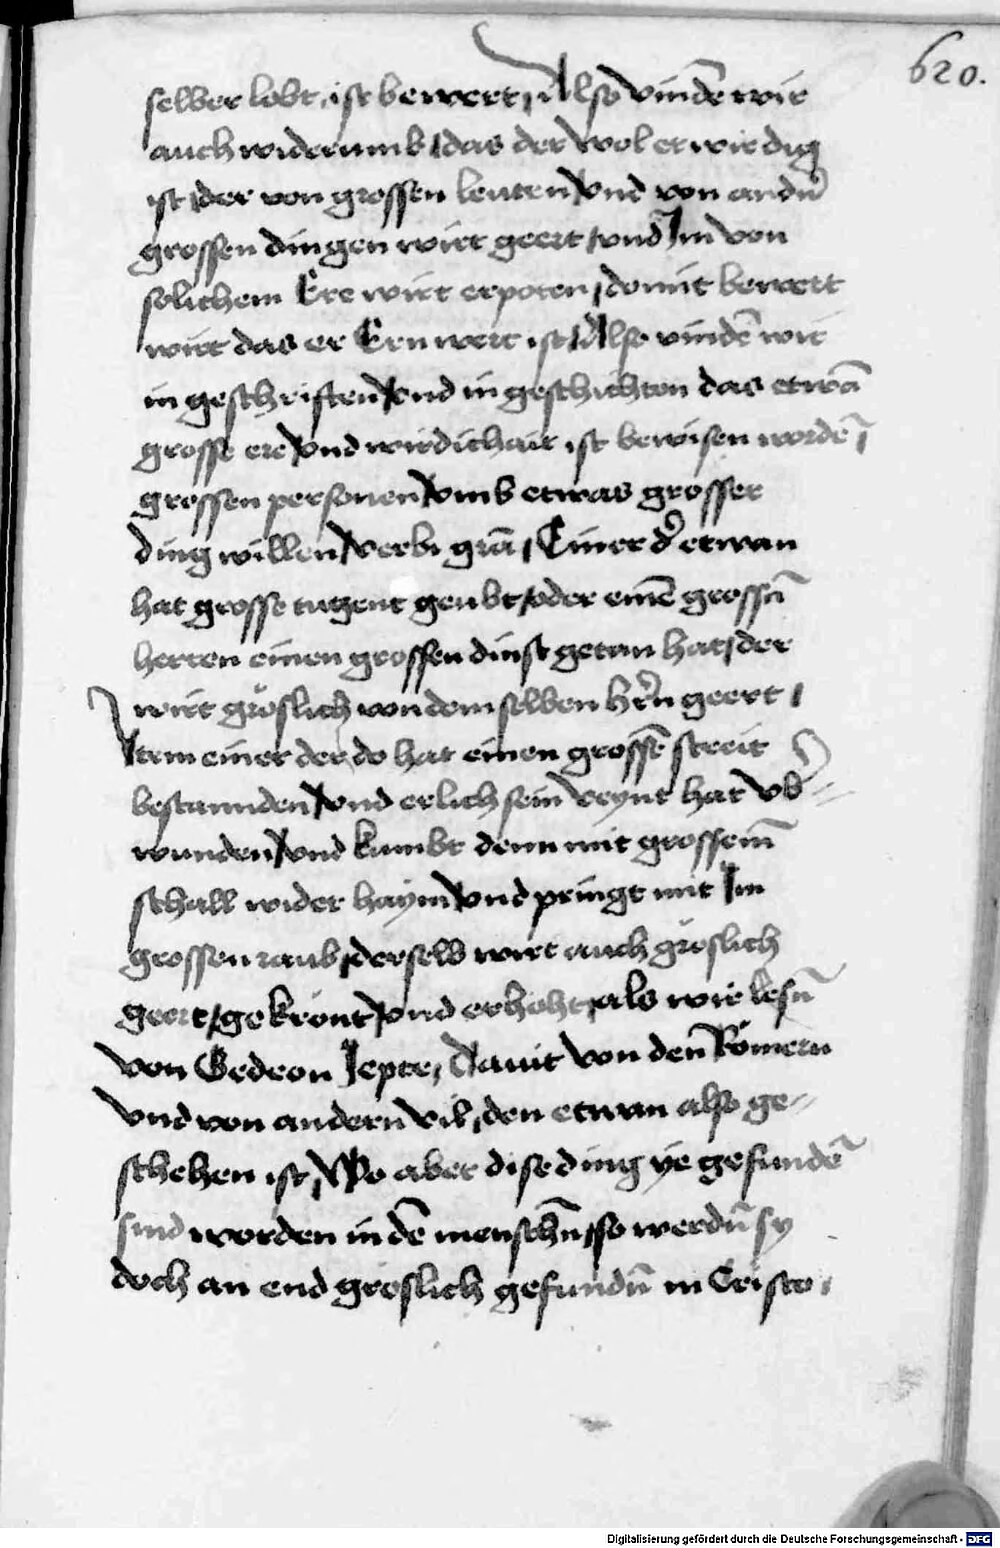 620.
selber lobt, ist bewert, Also vindē wir
auch widerumb / das der wol erwirdig
ist / der von grossen leuten / vnd von andn̄
grossen dingen wirt geert / vnd Im von
solichem Ere wirt erpoten, domit bewert
wirt das er Ern wert ist / Also vindē wir
in geschriften / vnd in geschichten das etwā
grosse ere / vnd wirdichait ist bewisen wordē
grossen personen / vmb etwas grosser
ding willen / verbi grā, Einer d̄ etwan
hat grosse tugent geubt / oder einē grossn̄
herren einen grossen dinst getan hat / der
wirt gröslich von dem selben hr̄n geert,
Item einer der do hat einen grossē streit
bestannden / vnd erlich sein veynt hat vb̄=
wunden / vnd kumbt denn mit grossem̄
schall wider haym / vnd pringt mit Im
grossen raub, derselb wirt auch gröslich
geert / gekrönt / vnd erhoht, als wir lesn̄
von Gedeon Jepte, Dauit von den Römern
vnd von andern vil, den etwan also ge=
schehen ist, Wo aber dise ding ye gefundē
sind worden in dē menschn̄ / so werdn̄ sy
doch an end gröslich gefundn̄ in Cristo,
Digitalisierung gefördert durch die Deutsche Forschungsgemeinschaft - DFG